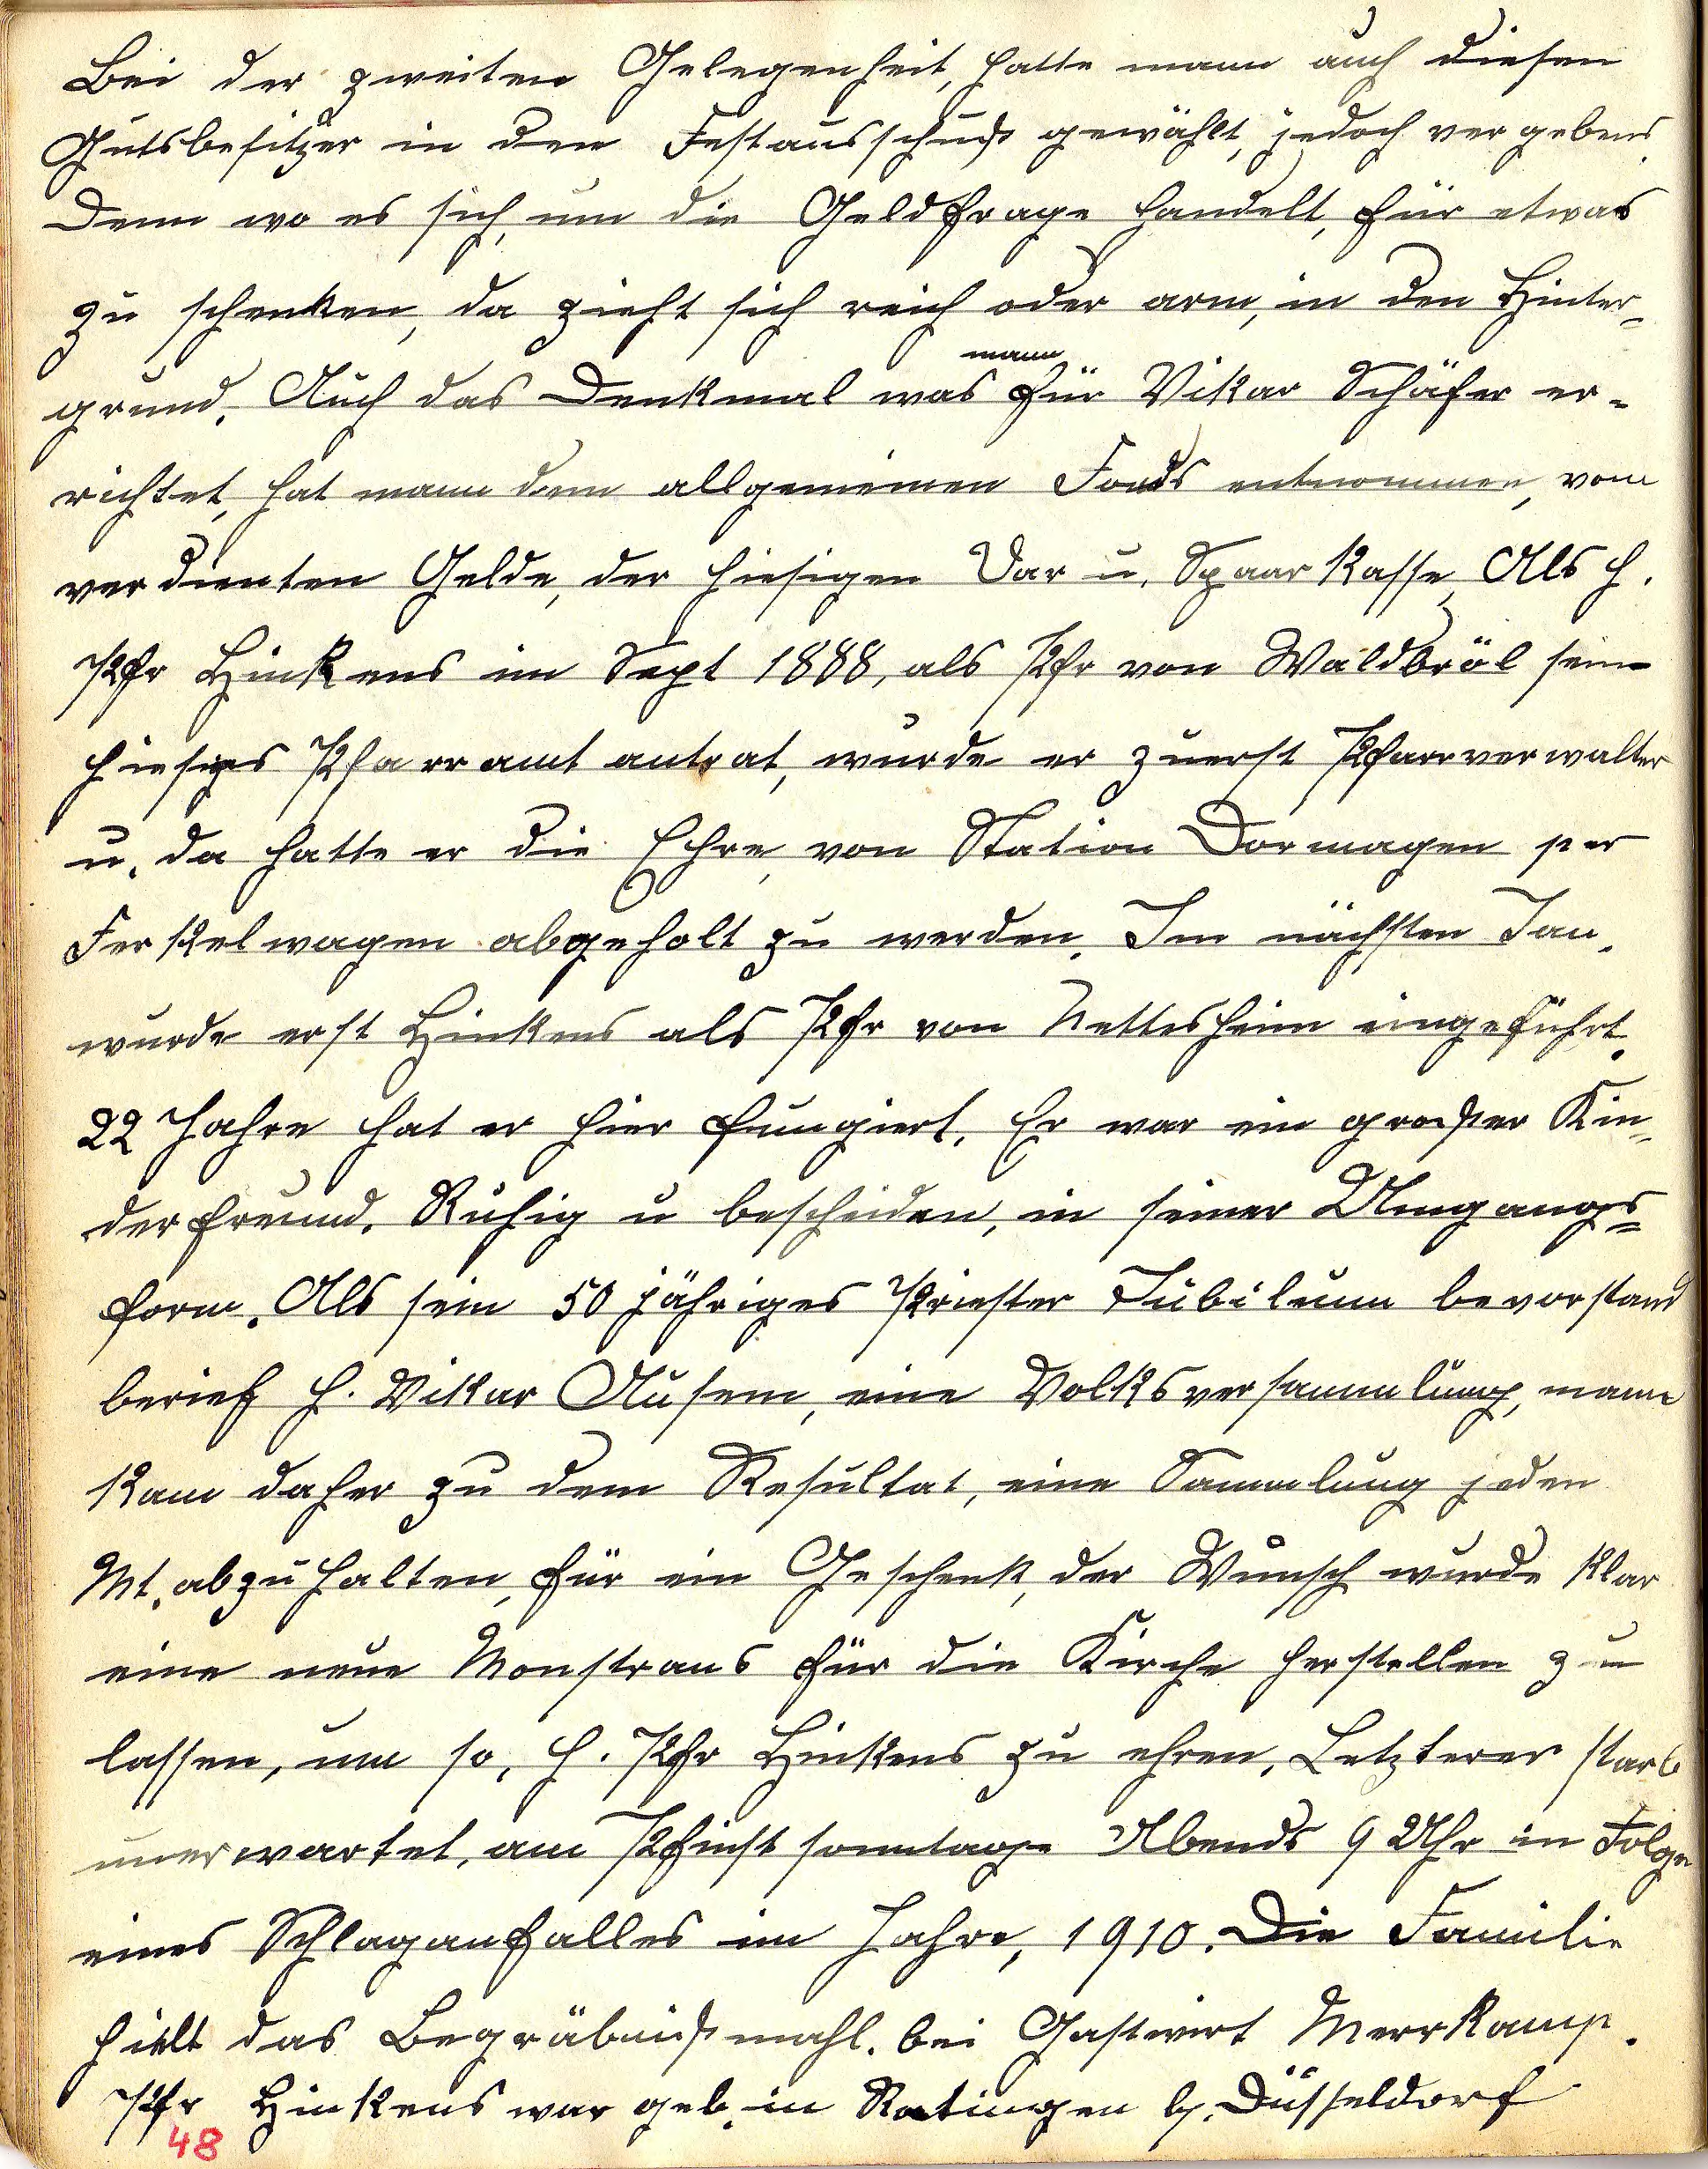 Bei der zweiten Gelegenheit, hatte mann auch diesen
Gutsbesitzer in den Festausschuß gewählt, jedoch vergebens.
Denn wo es sich, um die Geldfrage handelt, für etwas
zu schenken, da zieht sich reich oder arm, in den Hinter-
grund. Auch das Denkmal was mann für Vikar Schäfer er-
richtet, hat mann dem allgemeinen Fonds entnommen, vom
verdienten Gelde, der hiesigen Dar u. Spaar Kasse, Als H.
Pfr Hinkens im Sept 1888, als Pfr von Waldbröl sein
hiesiges Pfarramt antrat, wurde er zuerst Pfarrverwalter
u. da hatte er die Ehre, von Station Dormagen per
Ferkelwagen abgeholt zu werden. Im nächsten Jan.
wurde erst Hinkens als Pfr von Nettesheim eingeführt.
22 Jahre hat er hier fungiert. Er war ein großer Kin-
derfreund. Ruhig u bescheiden, in seiner Umgangs=
form. Als sein 50 jähriges Priester Jubileum bevorstand
berief H. Vikar Ausem, eine Volksversammlung, mann
kam daher zu dem Resultat, eine Sammlung jeden
Mt. abzuhalten, für ein Geschenk, der Wunsch wurde klar
eine neue Monstrans für die Kirche herstellen zu
lassen, um so, H. Pfr Hinkens zu ehren. Letzterer starb
unerwartet, am Pfinstsonntage Abends 9 Uhr in Folge
eines Schlaganfalles im Jahre, 1910. Die Familie
hielt das Begräbnißmahl. bei Gastwirt Merrkamp.
Pfr Hinkens war geb. in Ratingen b. Düsseldorf
48